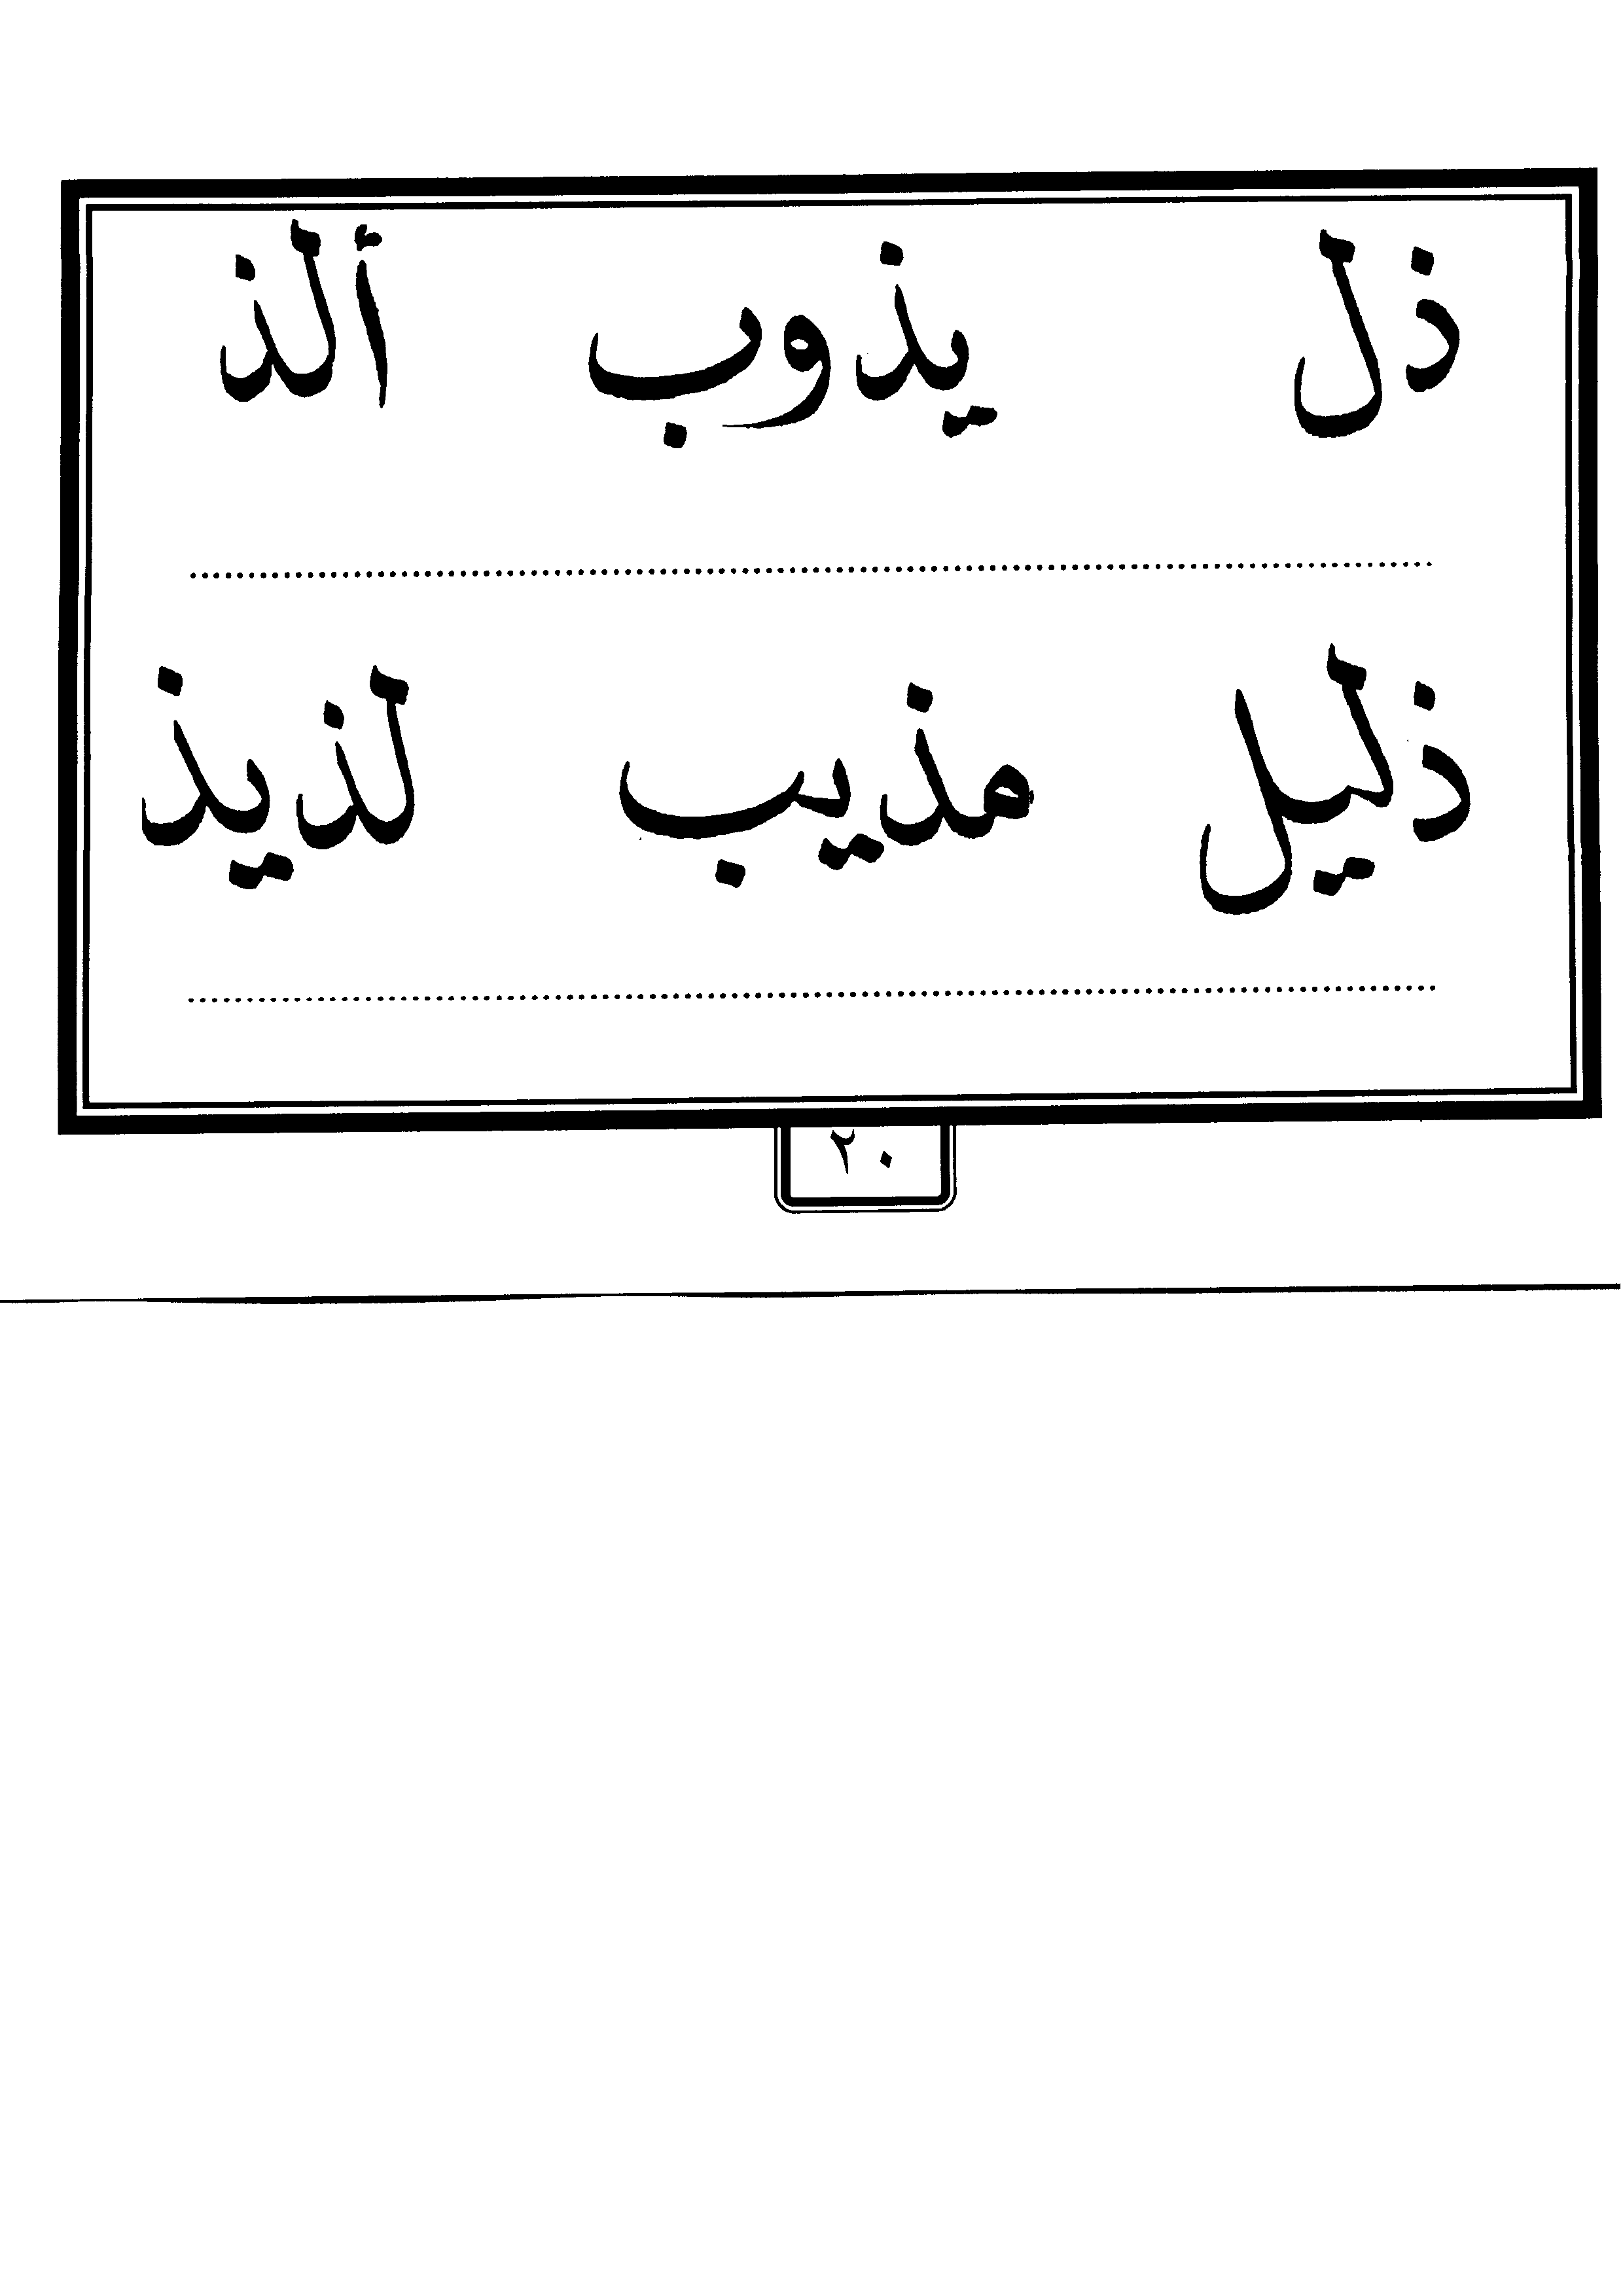 ذل يذوب ألذ
ذليل مذيب لذيذ
٢٠